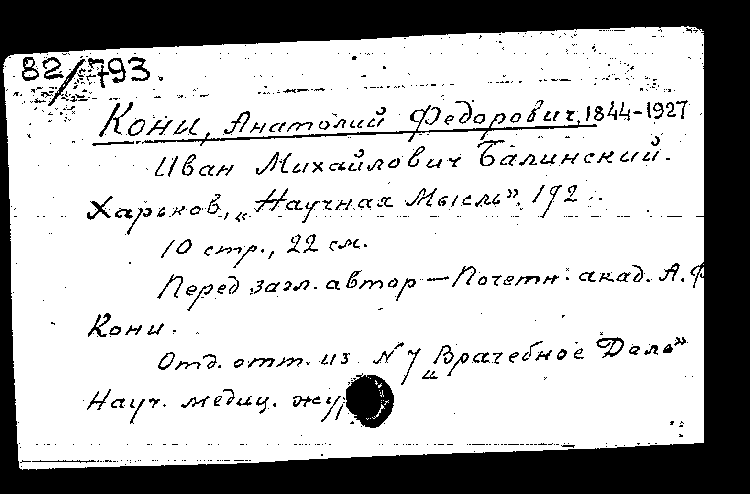 82/793.
Кони, Анатолий Федорович, 1844-1927
Иван Михайлович Балинский.
Харьков, „Научная Мысль". 192 .
10 стр., 22 см.
Перед загл. автор — Почетн. акад. А. Ф
Кони.
Отд. отт. из N 7 „Врачебное Дело"
Науч. медиц. жу